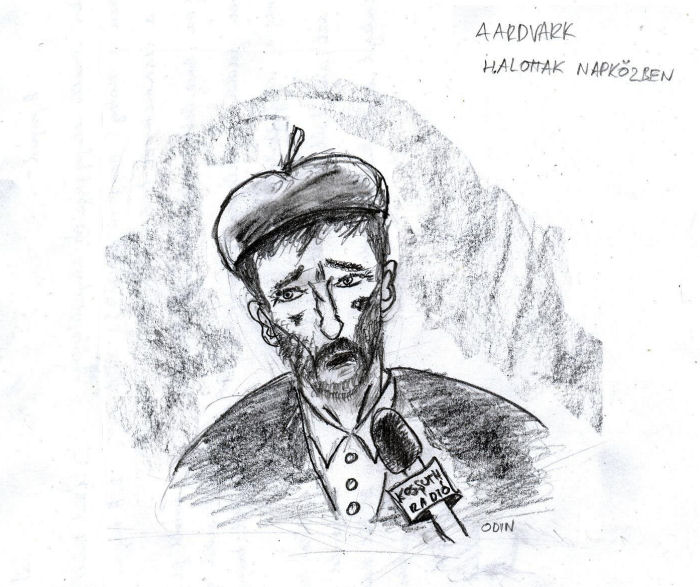 AARDVARK
HALOTTAK NAPKÖZBEN
KOSSUTH
RÁDIÓ
ODIN